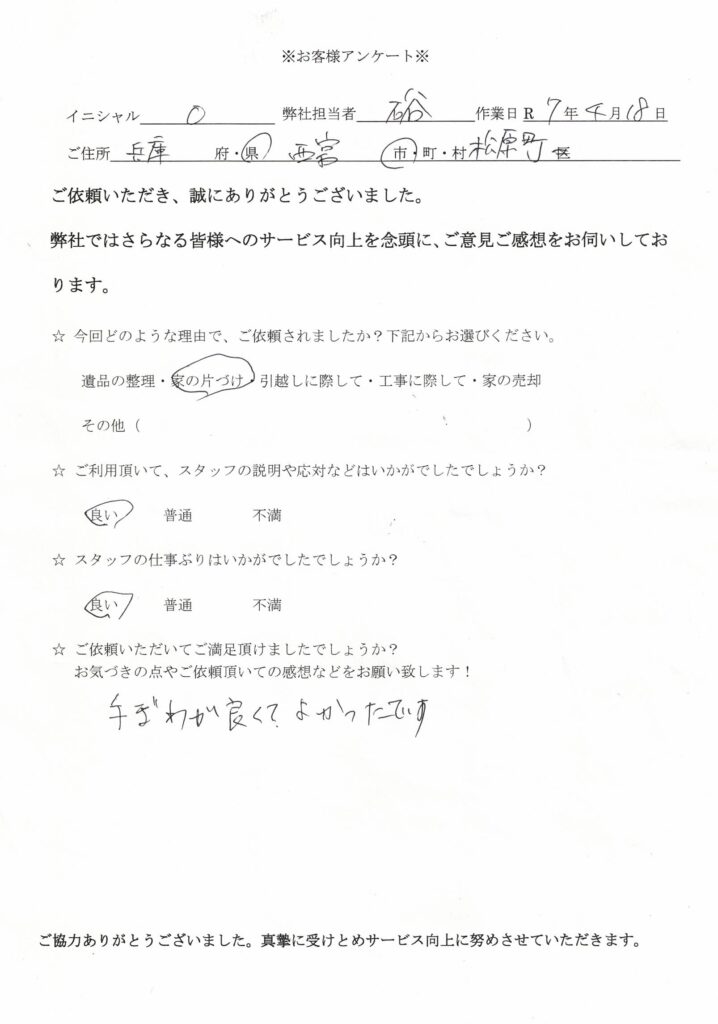 ※お客様アンケート※
イニシャル O 弊社担当者 硲 作業日 R 7 年 4 月 18 日
ご住所 兵庫 府・県 西宮 市・町・村 松原町 区
ご依頼いただき、誠にありがとうございました。
弊社ではさらなる皆様へのサービス向上を念頭に、ご意見ご感想をお伺いしてお
ります。
☆ 今回どのような理由で、ご依頼されましたか？下記からお選びください。
遺品の整理・家の片づけ・引越しに際して・工事に際して・家の売却
その他（ ）
☆ ご利用頂いて、スタッフの説明や応対などはいかがでしたでしょうか？
良い 普通 不満
☆ スタッフの仕事ぶりはいかがでしたでしょうか？
良い 普通 不満
☆ ご依頼いただいてご満足頂けましたでしょうか？
お気づきの点やご依頼頂いての感想などをお願い致します！
手ぎわが良くて よかったです
ご協力ありがとうございました。真摯に受けとめサービス向上に努めさせていただきます。